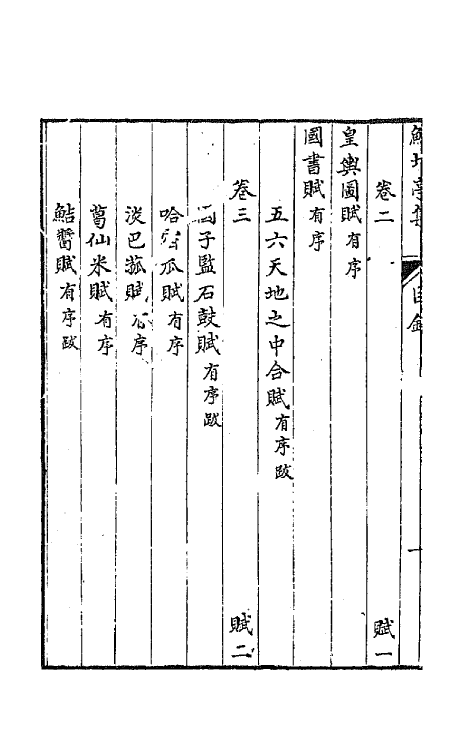 卷二 賦一
皇輿圖賦有序
國書賦有序
五六天地之中合賦有序跋
卷三 賦二
子監石鼓賦有序跋
哈密瓜賦有序
淡巴菰賦有序
葛仙米賦有序
鮚醬賦有序跋